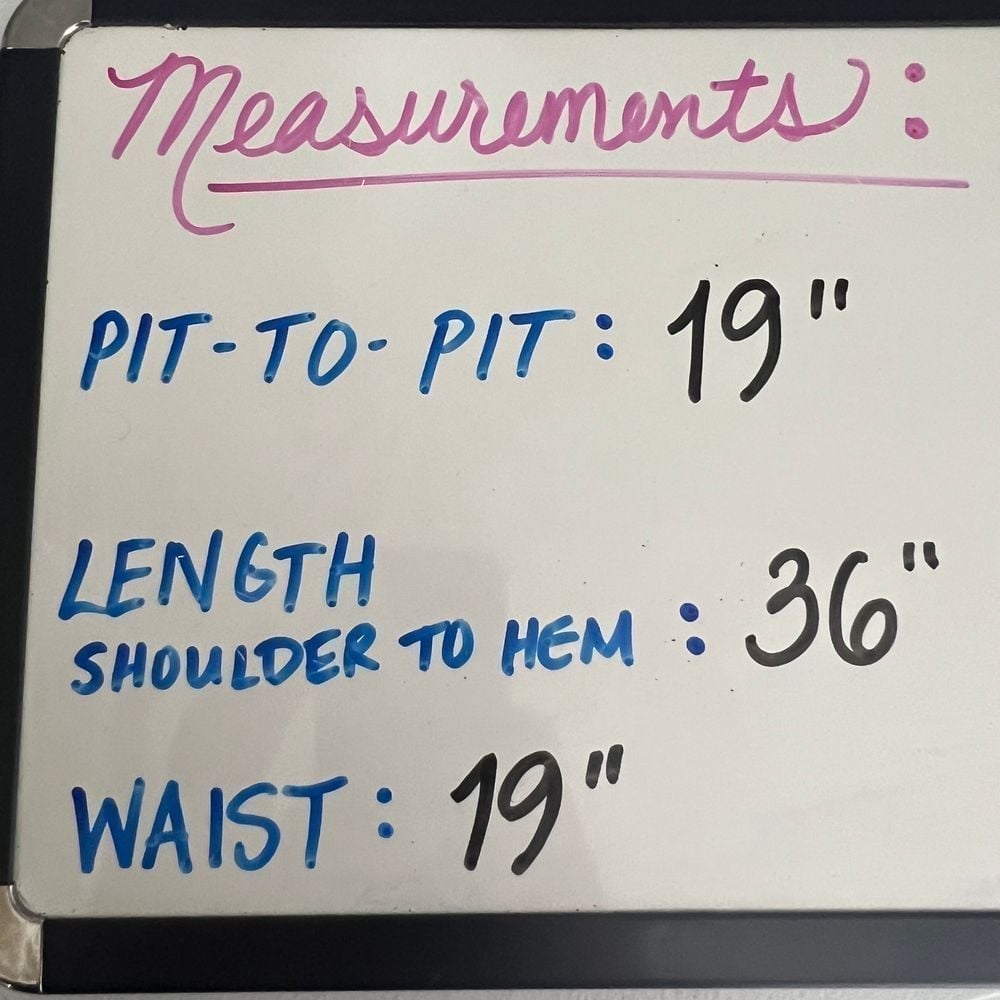 Measurements:
PIT-TO-PIT: 19"
LENGTH
SHOULDER TO HEM: 36"
WAIST: 19"